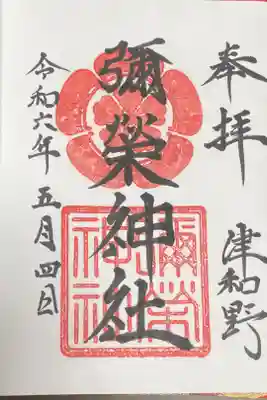 奉拝
津和野
彌榮神社
令和六年五月四日
彌榮
神社